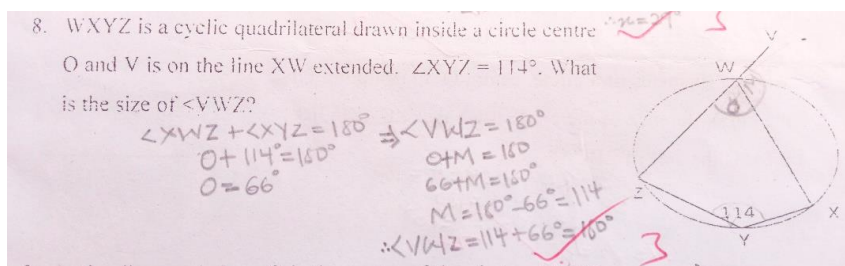 8. WXYZ is a cyclic quadrilateral drawn inside a circle centre
O and V is on the line XW extended. ∠XYZ = 114°. What
is the size of <VWZ?
∠XWZ + <XYZ = 180° ⇒ <VWZ = 180°
O + 114° = 180°
O = 66°
O+M = 180
66+M = 180°
M = 180° - 66° = 114
∴ <VWZ = 114 + 66° = 180°
3
V
W
M
O
Z
114
X
Y